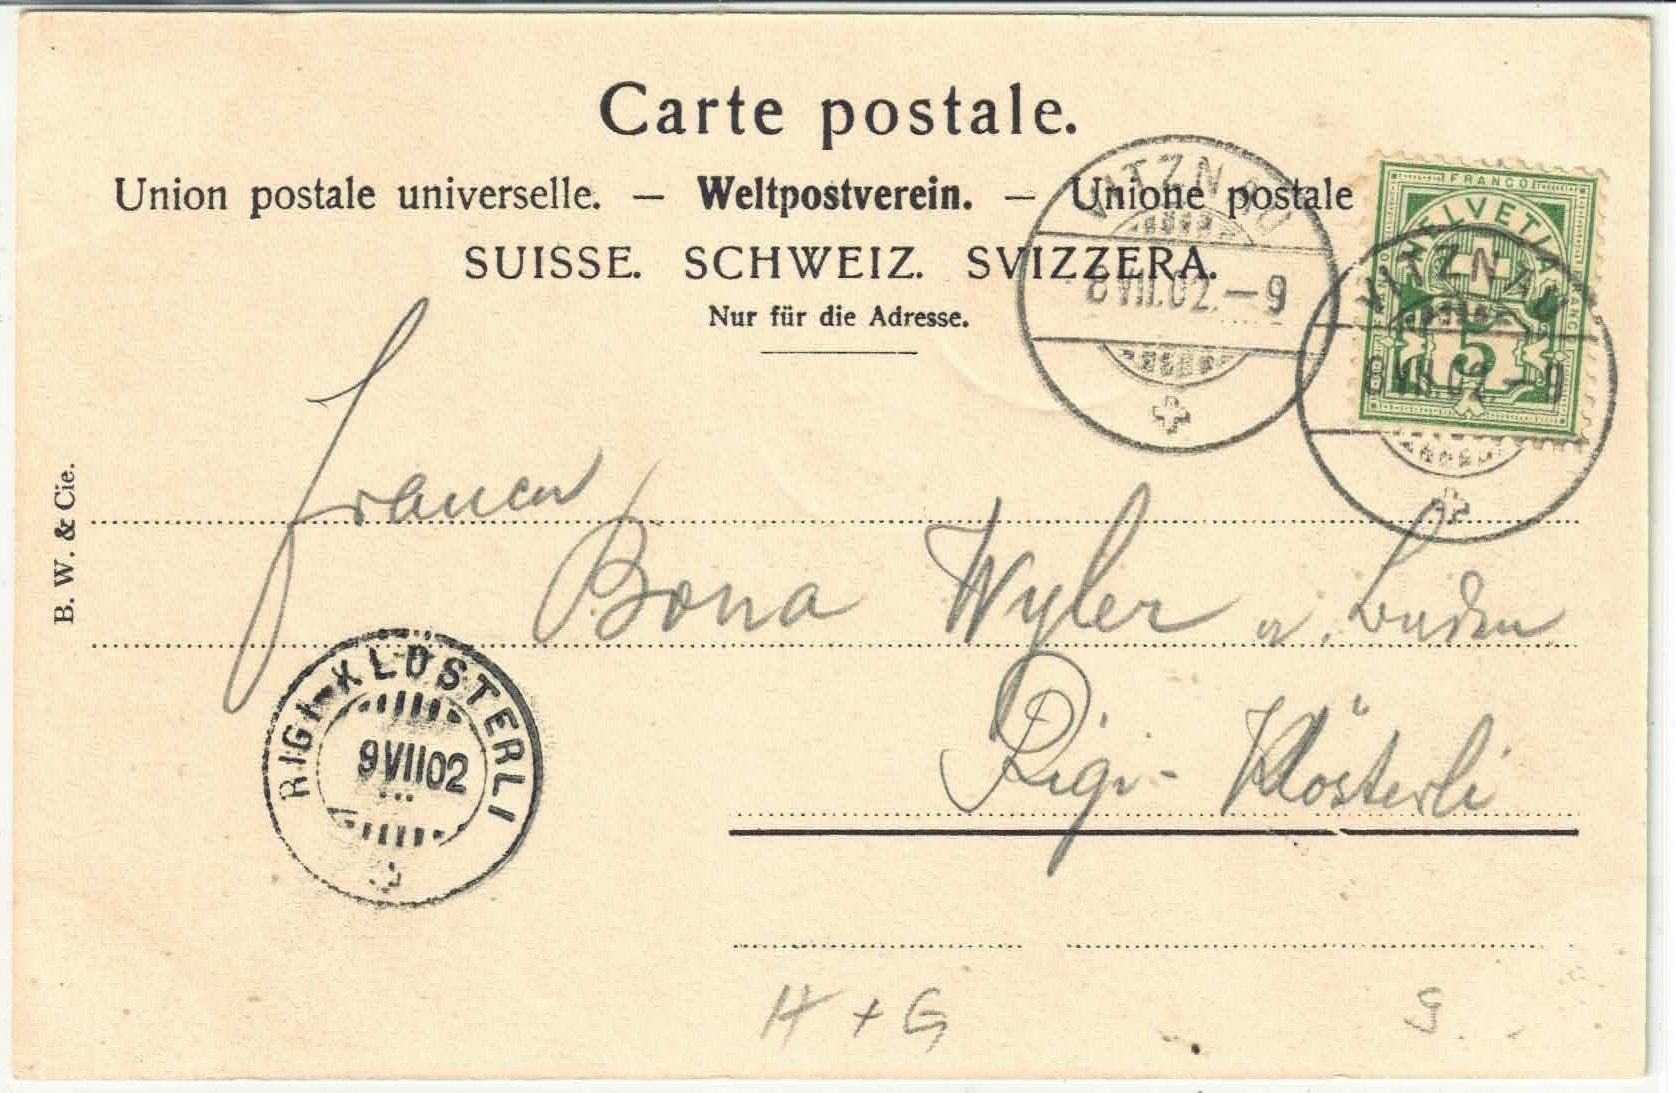 Carte postale.
Union postale universelle. — Weltpostverein. — Unione postale
SUISSE. SCHWEIZ. SVIZZERA.
Nur für die Adresse.
FRANCO
HELVETIA
5
VITZNAU
8 VII.02.–9
VITZNAU
8 VII.02.–9
B. W. & Cie.
Bona Wyler
Rigi-Klösterli
RIGI-KLÖSTERLI
9 VII 02
H + G